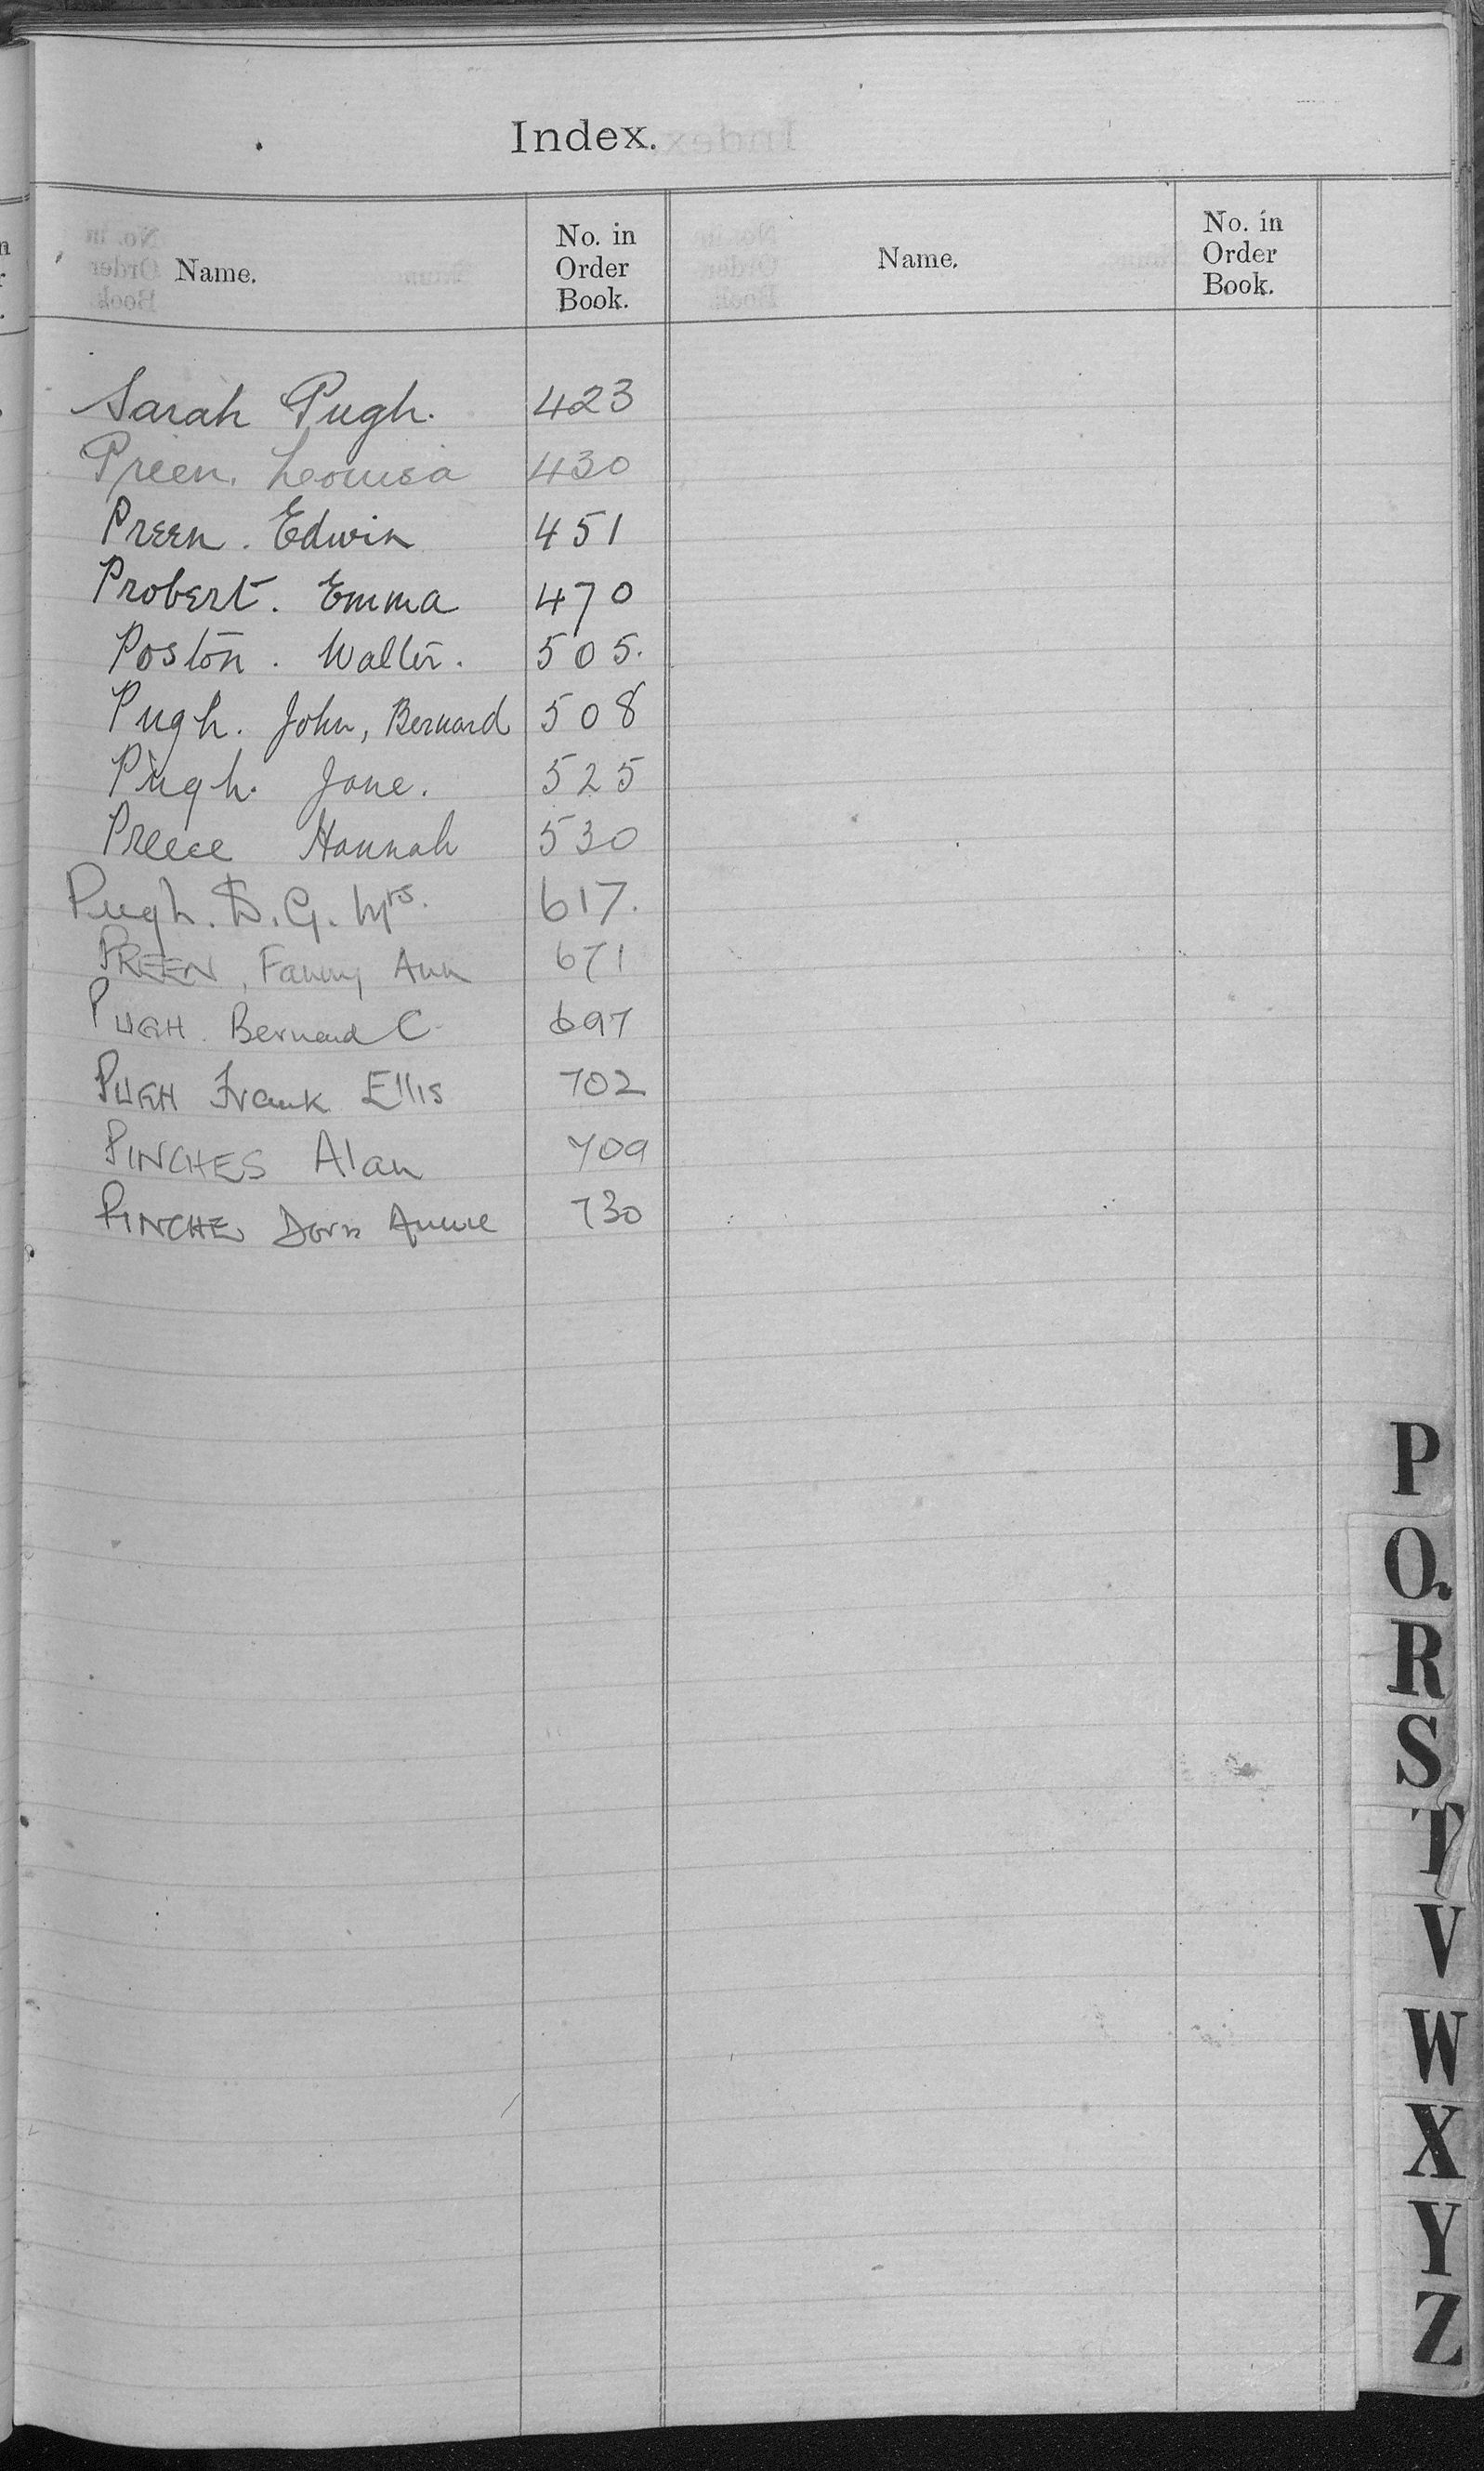 Index.
Name. No. in Order Book. Name. No. in Order Book.
Sarah Pugh. 423
Preen. Louisa 430
Preen. Edwin 451
Probert. Emma 470
Poston. Walter. 505.
Pugh. John, Bernard 508
Pugh. Jane. 525
Preece Hannah 530
Pugh. D. G. Mrs. 617.
PREEN, Fanny Ann 671
PUGH. Bernard C 697
PUGH Frank Ellis 702
PINCHES Alan 709
PINCHES Doris Annie 730
P
Q
R
S
T
V
W
X
Y
Z